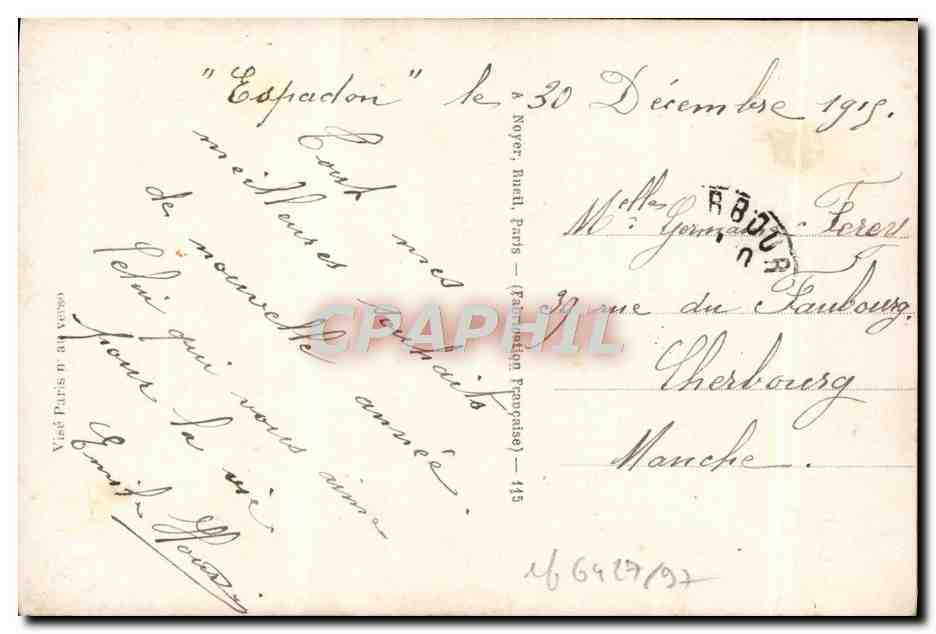 "Espadon" le 30 Décembre 1915.
Tout mes
meilleures souhaits
de nouvelle année
Celui qui vous aime
pour la vie
Emile
Melles Germaine Ferey
39 rue du Faubourg.
Cherbourg
Manche.
RBOUR
A Noyer, Rueil, Paris — (Fabrication Française) — 115
Visé Paris n° au verso
CPAPHIL
6427/97